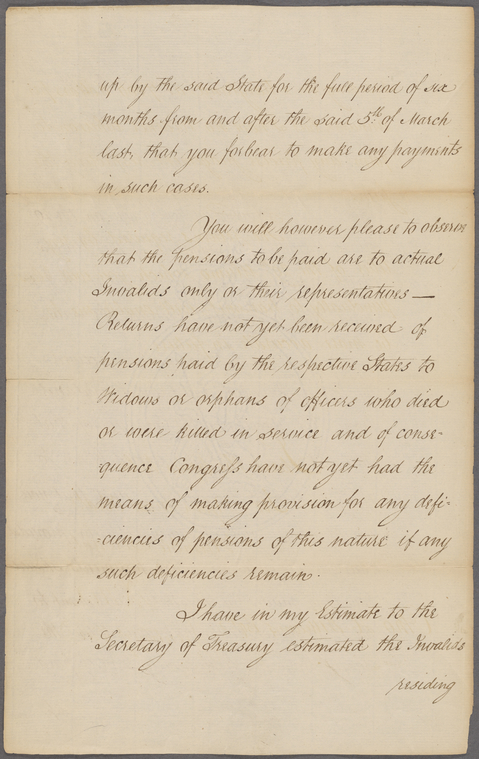 up by the said State for the full period of six
months from and after the said 5th. of March
last, that you forbear to make any payments
in such cases.
You will however please to observe
that the pensions to be paid are to actual
Invalids only or their representatives —
Returns have not yet been received of
pensions paid by the respective States to
Widows or orphans of officers who died
or were killed in service and of conse-
quence Congress have not yet had the
means of making provision for any defi-
-ciencies of pensions of this nature if any
such deficiencies remain.
I have in my Estimate to the
Secretary of Treasury estimated the Invalids
residing